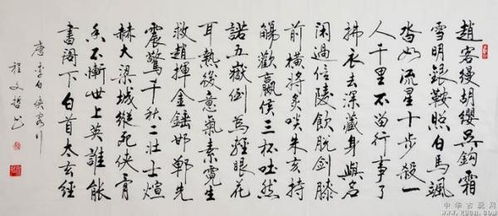 趙客縵胡纓吳鉤霜
雪明銀鞍照白馬颯
沓如流星十步殺一
人千里不留行事了
拂衣去深藏身與名
閑過信陵飲脫劍膝
前橫將炙啖朱亥持
觴勸嬴侯三杯吐然
諾五嶽倒為輕眼花
耳熱後意氣素霓生
救趙揮金錘邯鄲先
震驚千秋二壯士煊
赫大梁城縱死俠骨
香不慚世上英誰能
書閣下白首太玄經
唐李白俠客行
程文哲书
中华古玩网